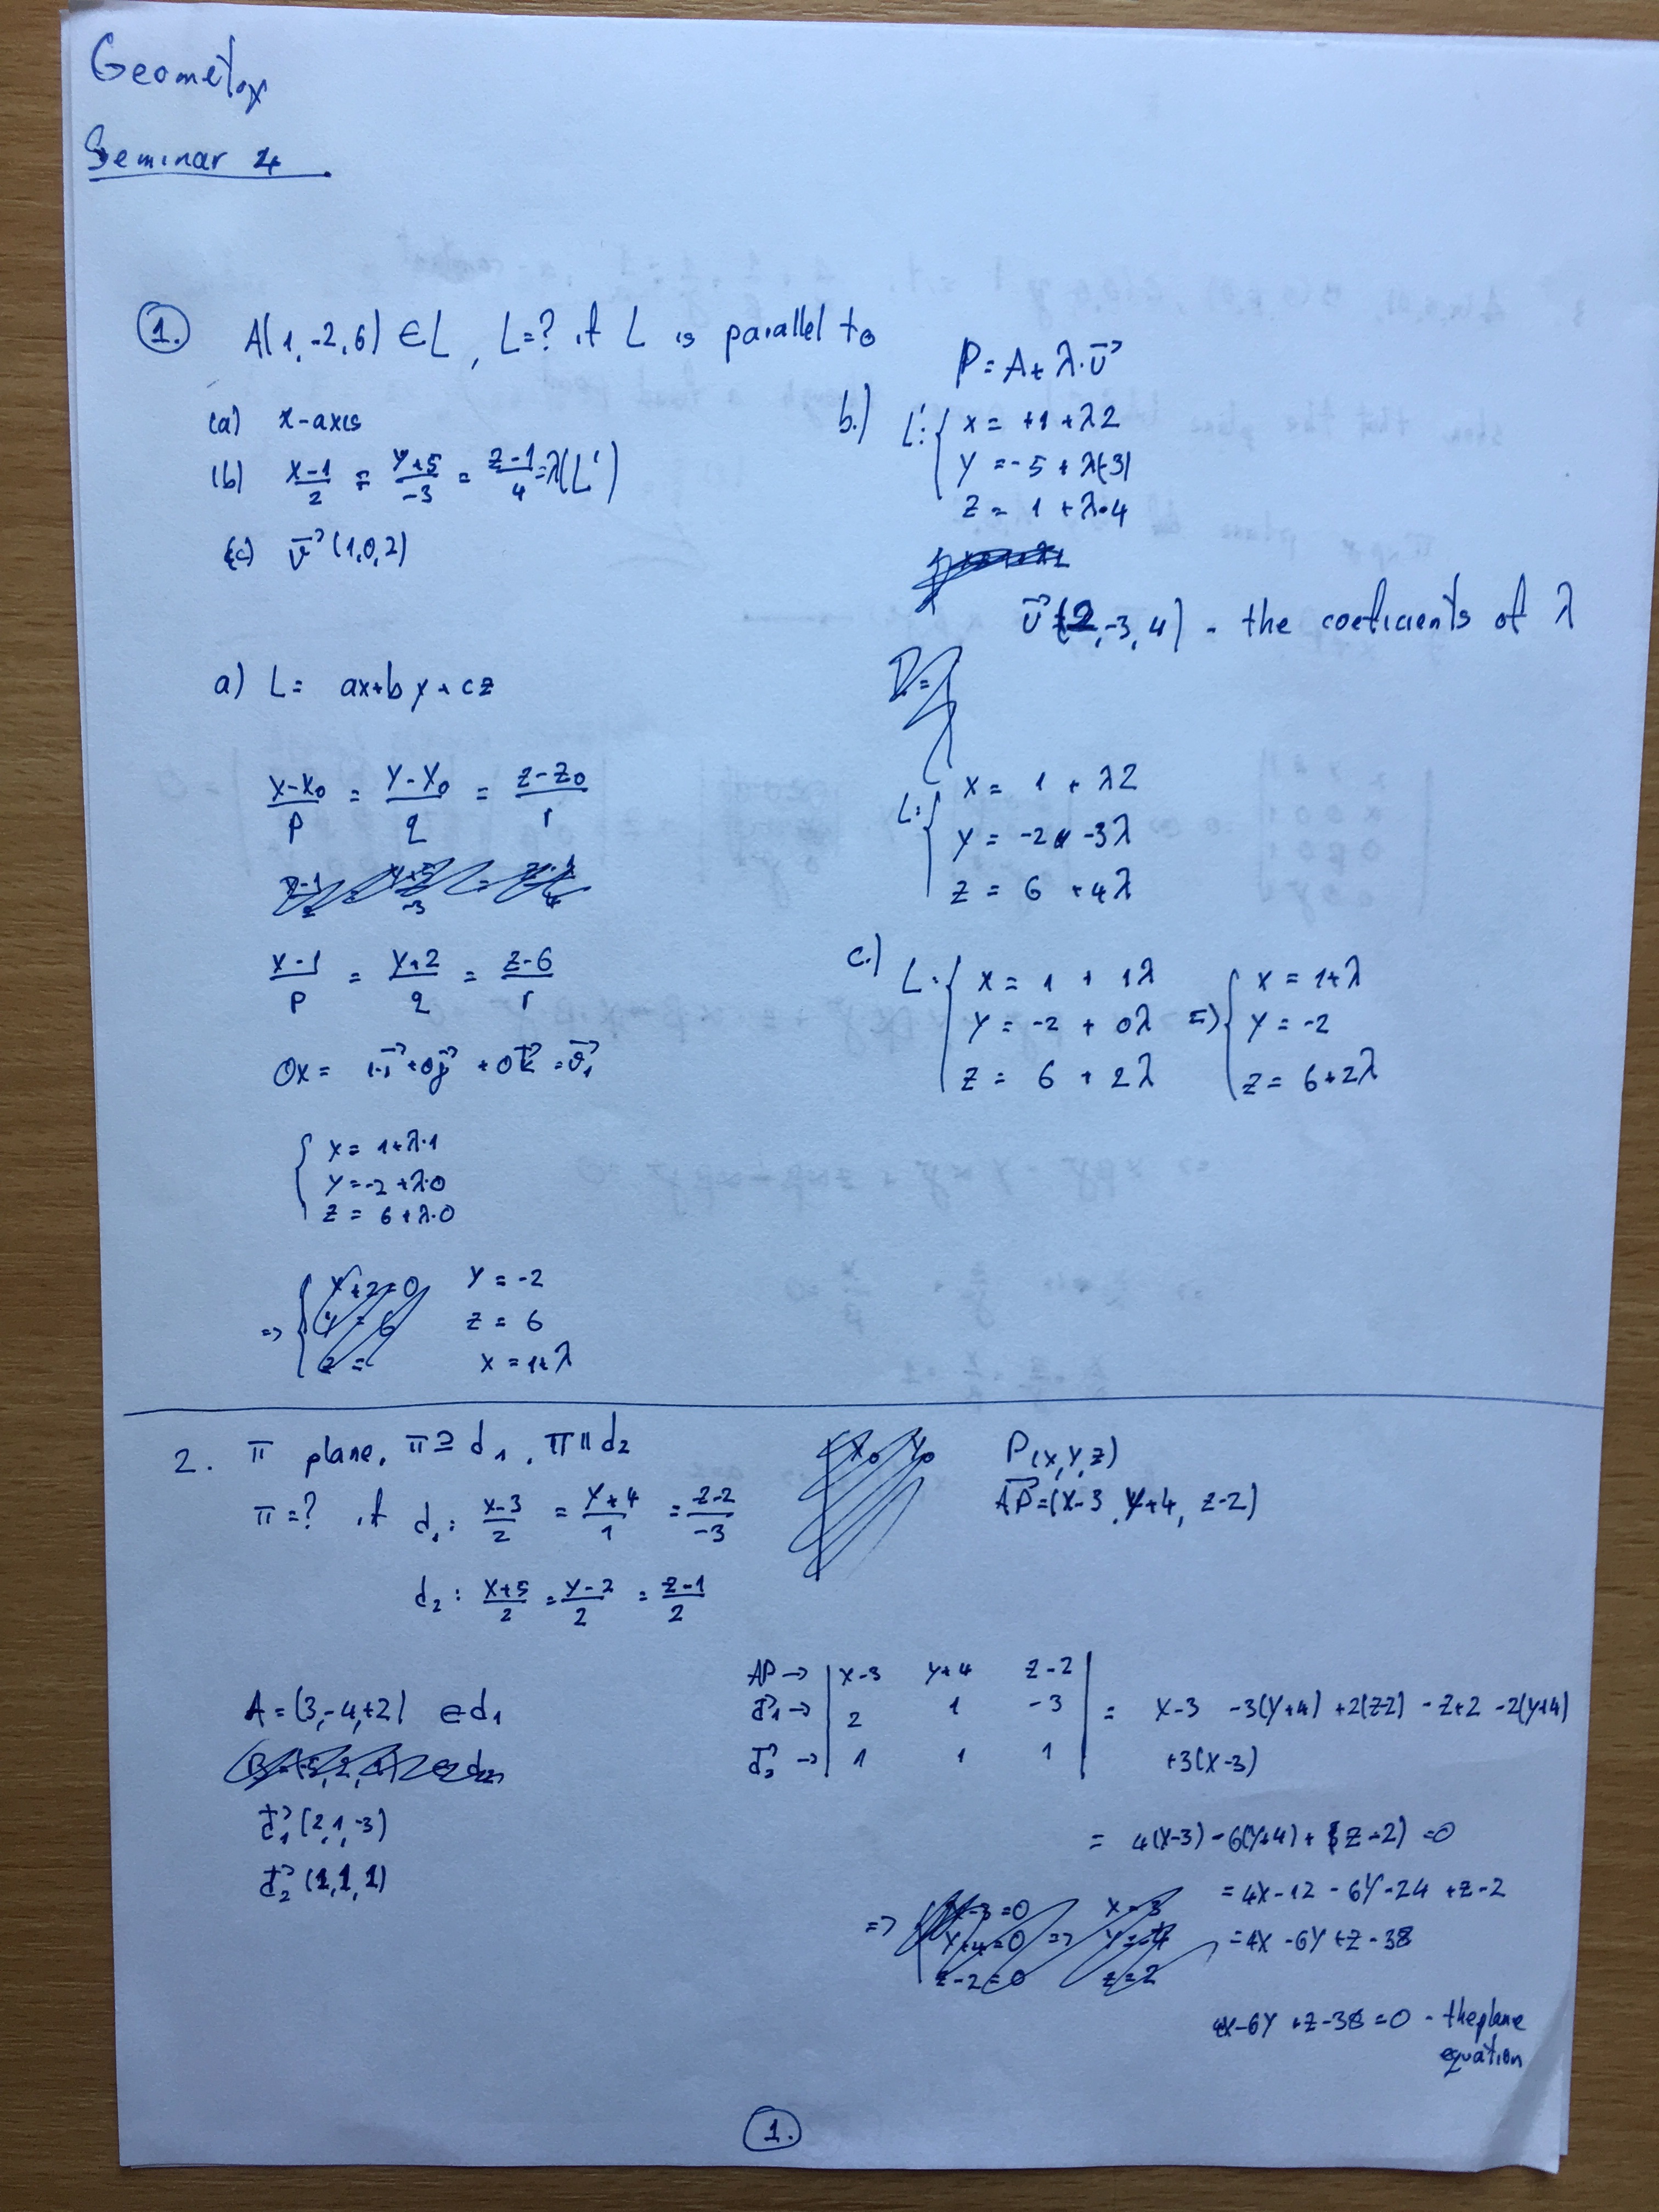 Geometry
Seminar 4
1. A(1,-2,6) ∈ L, L=? if L is parallel to
(a) x-axis
(b) x-1/2 = y+5/-3 = z-1/4 = λ(L')
(c) v⃗ (1,0,2)
a) L = ax+by+cz
x-x₀/p = y-y₀/q = z-z₀/r
x-1/p = y+2/q = z-6/r
Ox = 1·i⃗ + 0j⃗ + 0k⃗ = v⃗₁
{ x = 1+λ·1
y = -2+λ·0
z = 6+λ·0
=> { y = -2
z = 6
x = 1+λ
P = A + λ·v⃗
b.) L': { x = +1 + λ2
y = -5 + λ(-3)
z = 1 + λ·4
v⃗(2,-3,4) - the coeficients of λ
L: { x = 1 + λ2
y = -2 -3λ
z = 6 +4λ
c.) L: { x = 1 + 1λ => { x = 1+λ
y = -2 + 0λ y = -2
z = 6 + 2λ z = 6+2λ
2. π plane, π ⊇ d₁, π ∥ d₂
π=? if d₁: x-3/2 = y+4/1 = z-2/-3
d₂: x+5/2 = y-2/2 = z-1/2
A = (3,-4,+2) ∈ d₁
d⃗₁ (2,1,-3)
d⃗₂ (1,1,1)
P(x,y,z)
AP⃗ = (x-3, y+4, z-2)
AP -> | x-3 y+4 z-2 |
d⃗₁ -> | 2 1 -3 | = x-3 -3(y+4) +2(z-2) -z+2 -2(y+4)
d⃗₂ -> | 1 1 1 | +3(x-3)
= 4(x-3) - 6(y+4) + (z-2) = 0
= 4x-12 - 6y-24 + z-2
= 4x -6y + z - 38
4x-6y +z-38 = 0 - the plane
equation
1.